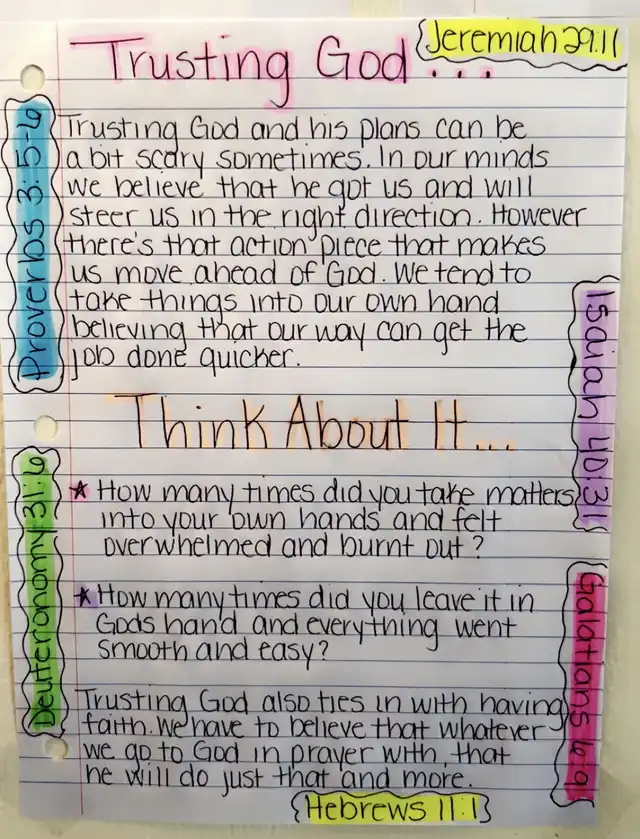 Jeremiah 29:11
Trusting God...
Proverbs 3:5-6
Trusting God and his plans can be
a bit scary sometimes. In our minds
we believe that he got us and will
steer us in the right direction. However
there's that action piece that makes
us move ahead of God. We tend to
take things into our own hand
believing that our way can get the
job done quicker.
Isaiah 40:31
Think About It...
Deuteronomy 31:6
* How many times did you take matters
into your own hands and felt
overwhelmed and burnt out?
* How many times did you leave it in
Gods hand and everything went
smooth and easy?
Galatians 6:9
Trusting God also ties in with having
faith. We have to believe that whatever
we go to God in prayer with, that
he will do just that and more.
Hebrews 11:1